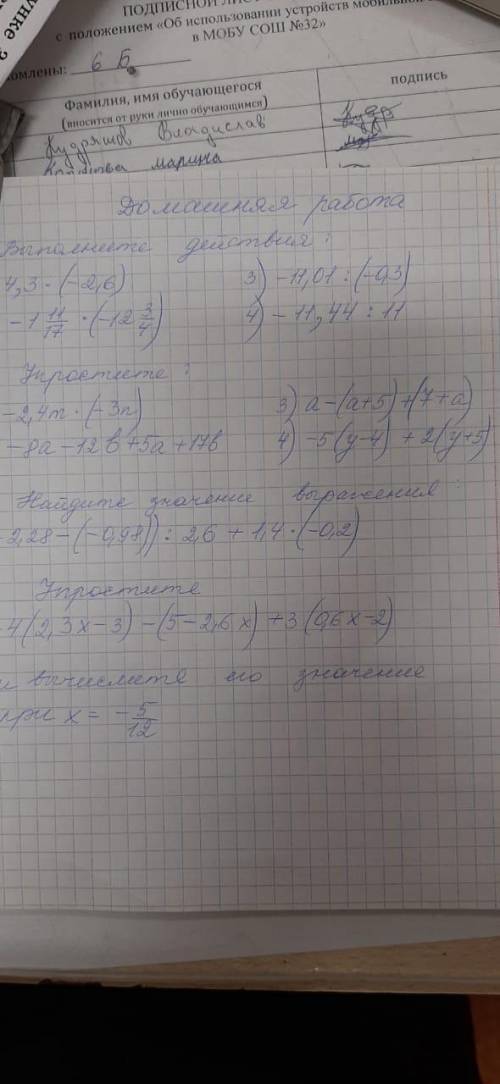 ПОДПИСНОЙ ЛИСТ
с положением «Об использовании устройств мобильной
в МОБУ СОШ №32»
омлены: 6 Б
Фамилия, имя обучающегося
(вносится от руки лично обучающимся)
подпись
Кудряшов Владислав
марина
Домашняя работа
Выполните действия:
4,3 · (-2,6) 3) -11,01 : (-0,3)
-1 11/17 · (-12 3/4) 4) -11,44 : 11
Упростите:
-2,4m · (-3n) 3) a-(a+5)+(7+a)
-8a-12b+5a+17b 4) -5(y-4)+2(y+5)
Найдите значение выражения:
2,28-(-0,98)) : 2,6 + 1,4 · (-0,2)
Упростите
4(2,3x-3)-(5-2,6x)+3(0,6x-2)
и вычислите его значение
при x= -5/12